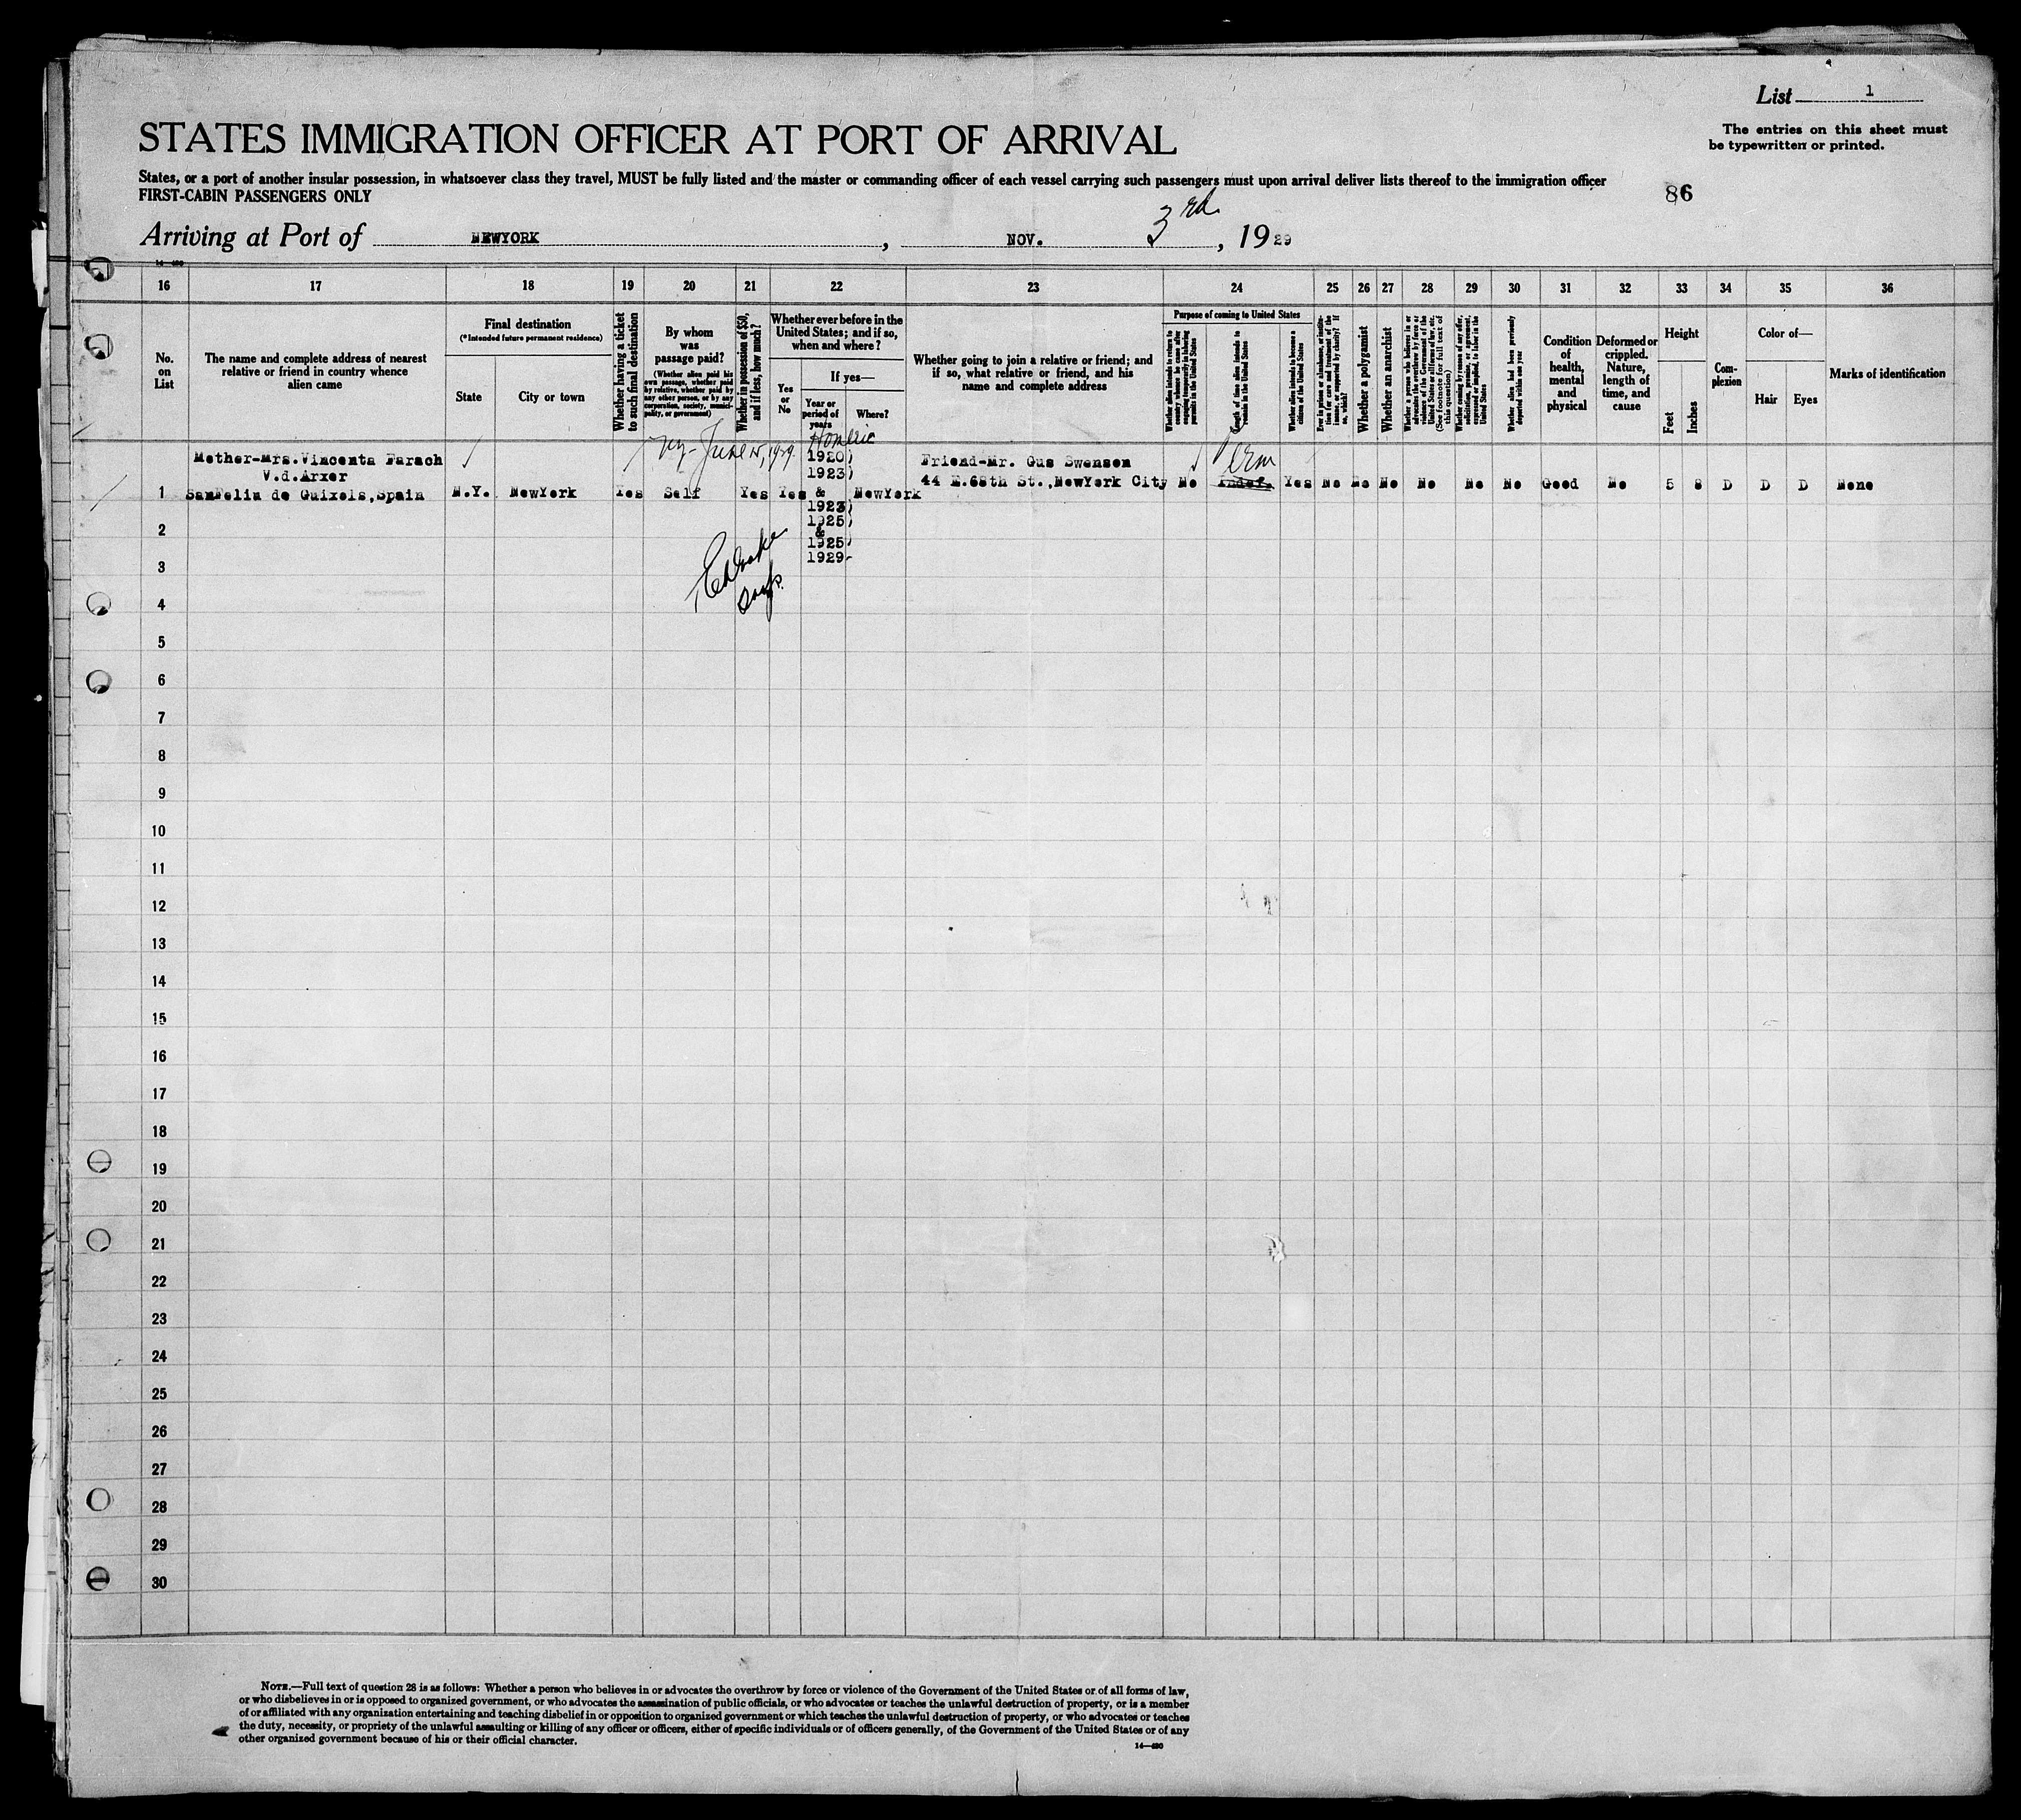 List 1
STATES IMMIGRATION OFFICER AT PORT OF ARRIVAL
The entries on this sheet must
be typewritten or printed.
States, or a port of another insular possession, in whatsoever class they travel, MUST be fully listed and the master or commanding officer of each vessel carrying such passengers must upon arrival deliver lists thereof to the immigration officer
FIRST-CABIN PASSENGERS ONLY
86
Arriving at Port of NEWYORK, NOV. 3rd, 1929
14—430
16 17 18 19 20 21 22 23 24 25 26 27 28 29 30 31 32 33 34 35 36
No.
on
List
The name and complete address of nearest
relative or friend in country whence
alien came
Final destination
(*Intended future permanent residence)
State
City or town
Whether having a ticket
to such final destination
By whom
was
passage paid?
(Whether alien paid his
own passage, whether paid
by relative, whether paid by
any other person, or by any
corporation, society, munici-
pality, or government)
Whether in possession of $50,
and if less, how much?
Whether ever before in the
United States; and if so,
when and where?
Yes
or
No
If yes—
Year or
period of
years
Where?
Whether going to join a relative or friend; and
if so, what relative or friend, and his
name and complete address
Purpose of coming to United States
Whether alien intends to return to
country whence he came after
engaging temporarily in laboring
pursuits in the United States
Length of time alien intends to
remain in the United States
Whether alien intends to become a
citizen of the United States
Ever in prison or almshouse, or institu-
tion for care and treatment of the
insane, or supported by charity? If
so, which?
Whether a polygamist
Whether an anarchist
Whether a person who believes in or
advocates the overthrow by force or
violence of the Government of the
United States or all forms of law, etc.
(See footnote for full text of
this question)
Whether coming by reason of any offer,
solicitation, promise, or agreement,
expressed or implied, to labor in the
United States
Whether alien had been previously
deported within one year
Condition
of
health,
mental
and
physical
Deformed or
crippled.
Nature,
length of
time, and
cause
Height
Feet
Inches
Com-
plexion
Color of—
Hair
Eyes
Marks of identification
NY-June 15, 1929. Homeric
Mother-Mrs. Vincenta Farach
V.d.Arxer
1 SanFeliu de Guixols,Spain N.Y. NewYork Yes Self Yes Yes
1920)
1923)
& NewYork
1923)
1925)
&
1925)
1929-
Friend-Mr. Gus Swenson
44 E.68th St.,NewYork City No Perm Yes No No No No No No Good No 5 8 D D D None
2
3
4
5
6
7
8
9
10
11
12
13
14
15
16
17
18
19
20
21
22
23
24
25
26
27
28
29
30
NOTE.—Full text of question 28 is as follows: Whether a person who believes in or advocates the overthrow by force or violence of the Government of the United States or of all forms of law,
or who disbelieves in or is opposed to organized government, or who advocates the assassination of public officials, or who advocates or teaches the unlawful destruction of property, or is a member
of or affiliated with any organization entertaining and teaching disbelief in or opposition to organized government or which teaches the unlawful destruction of property, or who advocates or teaches
the duty, necessity, or propriety of the unlawful assaulting or killing of any officer or officers, either of specific individuals or of officers generally, of the Government of the United States or of any
other organized government because of his or their official character.
14—430